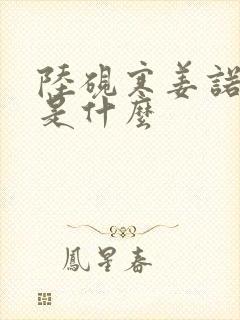 陸硯寒姜諾
是什麼
鳳星春